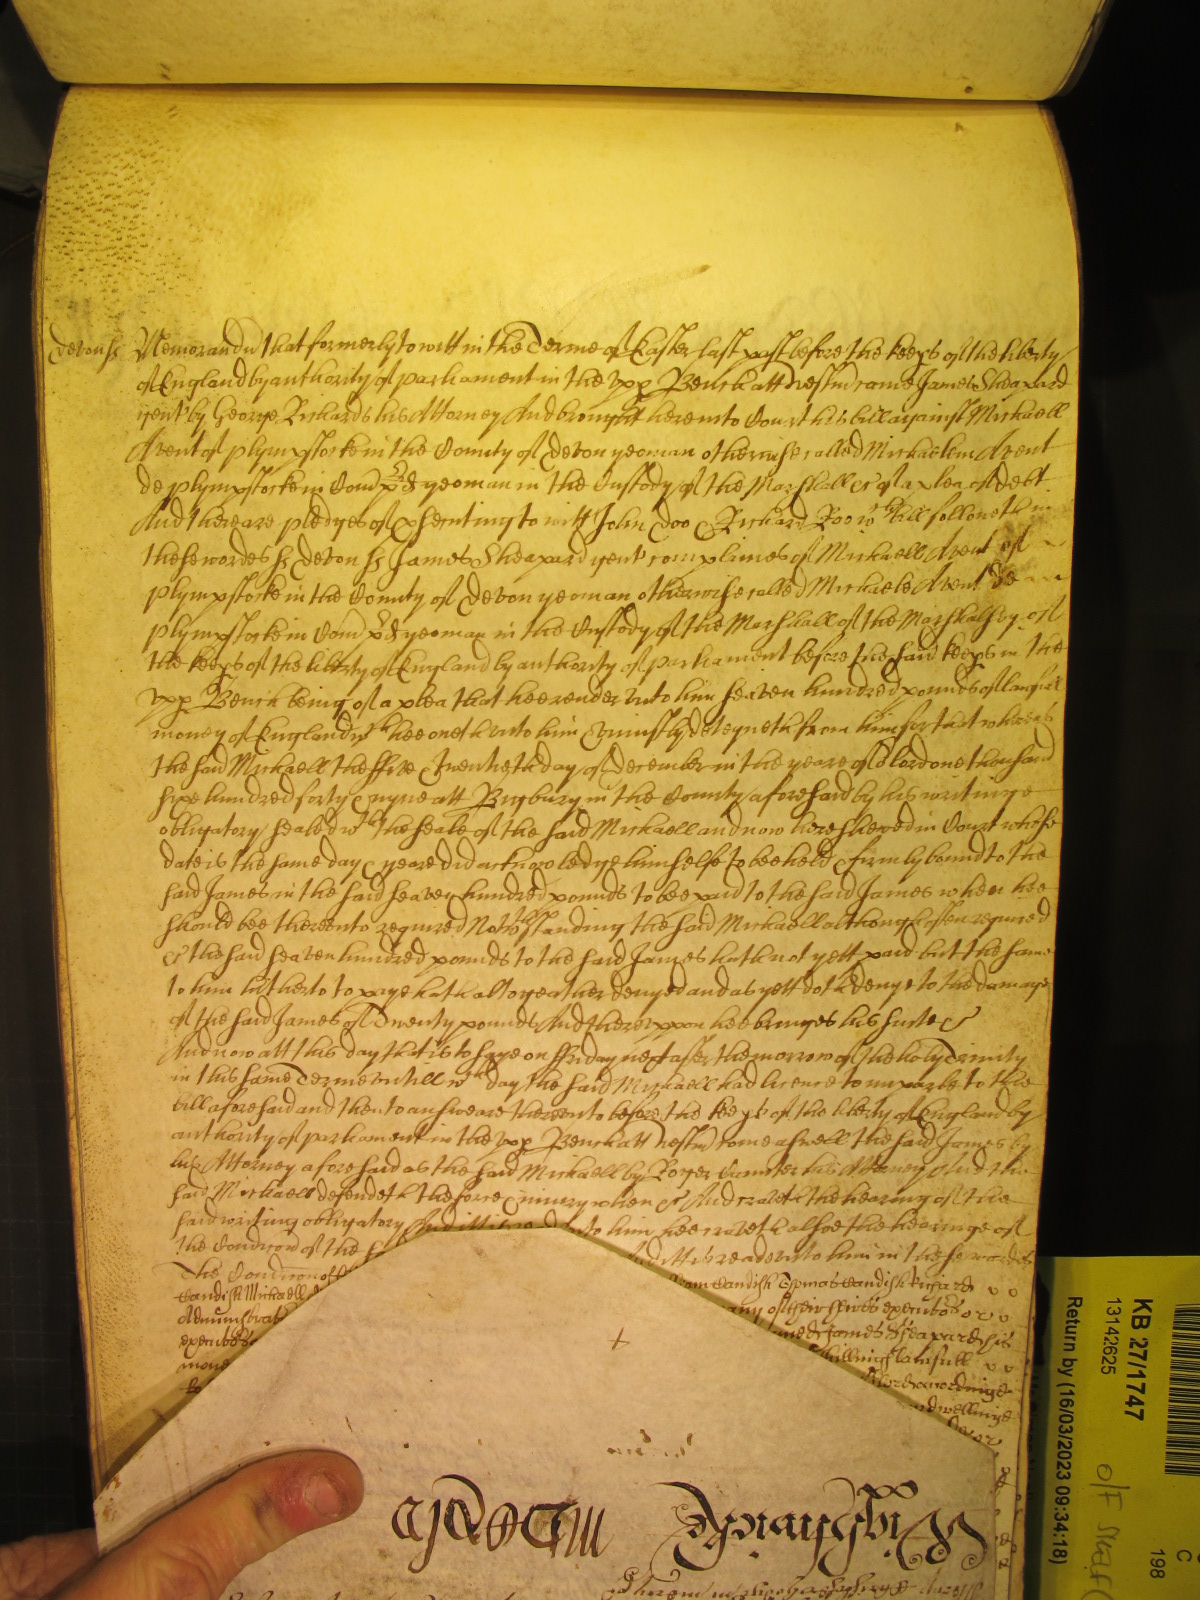 devon ss Memorandu that formerly to witt in the Terme of Easter last past before the keeps of the liberty
of England by authority of parliament in the vpp Bench att Westm came James Sheapard
gent by George Rickards his Attorney And brought here into Court his bill against Michaell
Avent of plympstocke in the County of devon yeoman otherwise called Michaelem Avent
de plympstocke in Com pd yeoman in the Custody of the Marshall &c of a plea of debt
And there are pledges of psecuting to witt John Doo & Richard Roo wch bill followeth in
these wordes ss devon ss James Sheapard gent complaines of Michaell Avent of
plympstocke in the County of devon yeoman otherwise called Michaele Avent de
plympstocke in Com pd yeoman in the Custody of the Marshall of the Marshalsey of
the keeps of the liberty of England by authority of parliament before the said keeps in the
vpp Bench being of a plea that hee render vnto him seaven hundred pounds of lawfull
money of England wch hee oweth vnto him & vniustly deteyneth from him for that whereas
the said Michaell the ffive & twentieth day of december in the yeare of or lord one thousand
sixe hundred forty & nyne att Bigbury in the County aforesaid by his writinge
obligatory sealed wth the seale of the said Michaell and now here shewed in Court whose
date is the same day & yeare did acknowledge himselfe to bee held & firmly bound to the
said James in the said seaven hundred pounds to bee paid to the said James when hee
should bee therevnto required Notwthstanding the said Michaell although often required
&c the said seaven hundred pounds to the said James hath not yett paid but the same
to him hitherto to paye hath altogeather denyed and as yett doth denye to the damage
of the said James of Twenty pounds And therevppon hee bringes his suite &c
And now att this day that is to saye on ffriday next after the morrow of the holy Trinity
in this same Terme vntill wch day the said Michaell had licence to imparle to the
bill aforesaid and then to answeare therevnto before the keeps of the liberty of England by
authority of parliament in the vpp Bench att Westm come aswell the said James by
his Attorney aforesaid as the said Michaell by Roger his Attorney And the
said Michaell defendeth the force & iniury when &c And craveth the hearing of the
said writing obligatory And itt is vnto him hee craveth alsoe the hearinge of
the Condicon of the And itt is read vnto him in these wordes
The Condicon of Candish Thomas Candish Richard
Candish Michaell any of their heires executors or
Administrat James Sheapard his
executors shillings lawfull
mone
dwellinge
KB 27/1747
13142625
Return by (16/03/2023 09:34:18)
C
198